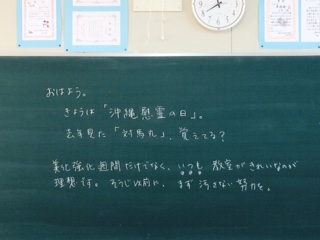 おはよう。
きょうは「沖縄慰霊の日」。
去年見た「対馬丸」、覚えてる?
美化強化週間だけでなく、いつも教室がきれいなのが
理想です。そうじ以前に、まず汚さない努力を。